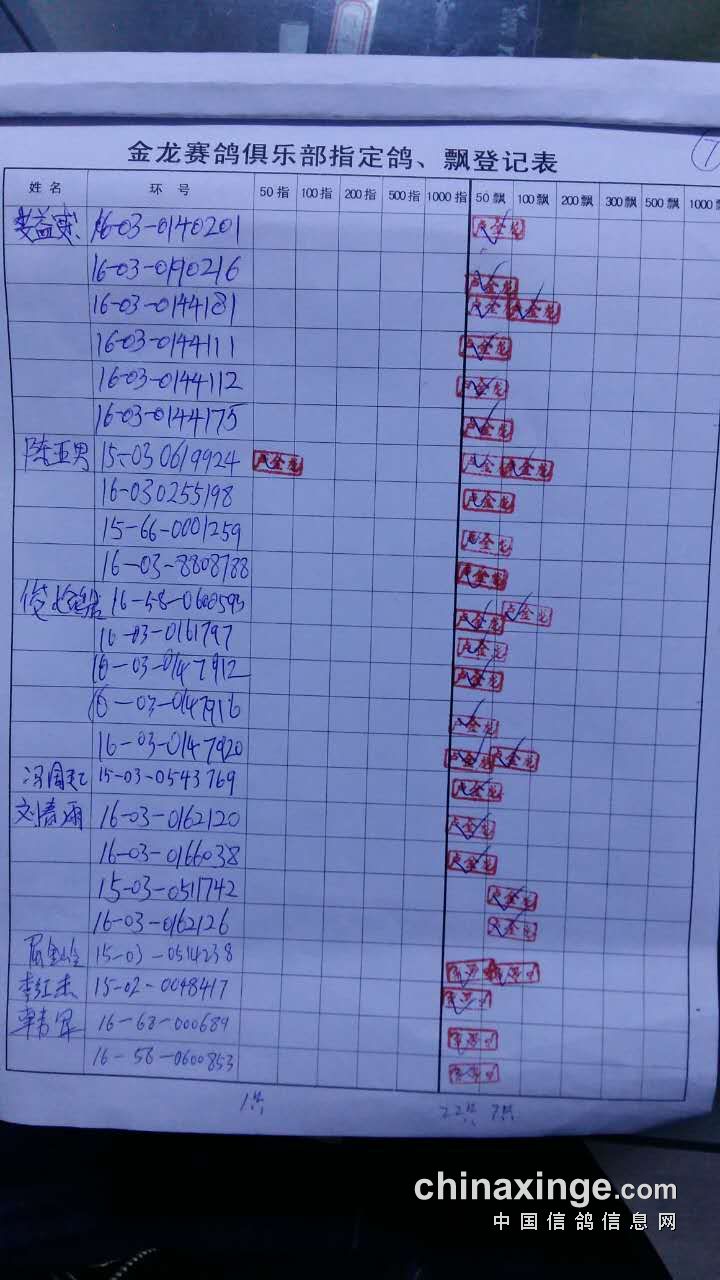 7
金龙赛鸽俱乐部指定鸽、飘登记表
姓名 环号 50指 100指 200指 500指 1000指 50飘 100飘 200飘 300飘 500飘 1000飘
16-03-0140201 点金龙
16-03-0190216 点金龙
16-03-0144181 点金龙 点金龙
16-03-0144111 点金龙
16-03-0144112 点金龙
16-03-0144175 点金龙
陈亚男 15-03 0619924 点金龙 点金龙 点金龙
16-030255198 点金龙
15-66-0001259 点金龙
16-03-8808788 点金龙
16-58-0600593 点金龙 点金龙
16-03-0161797 点金龙
16-03-0147912 点金龙
16-03-0147916 点金龙
16-03-0147920 点金龙 点金龙
15-03-0543769 点金龙
刘春雨 16-03-0162120 点金龙
16-03-0166038 点金龙
15-03-0511742 点金龙
16-03-0162126 点金龙
15-03-0514238
李红杰 15-02-0048417
16-68-000689
16-58-0600853
1 22 7
chinaxinge.com
中国信鸽信息网